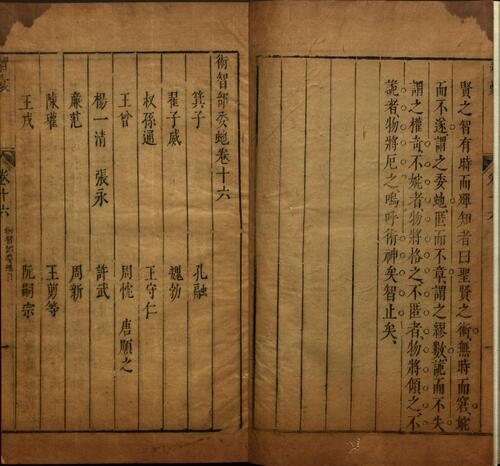 賢之智有時而殫知者曰聖賢之術無時而窘婉
而不遂謂之委虵匿而不章謂之繆數詭而不失
謂之權奇不婉者物將格之不匿者物將傾之不
詭者物將厄之嗚呼術神矣智止矣
術智部委虵卷十六
箕子 孔融
翟子威 魏勃
叔孫通 王守仁
王曾 周忱 唐順之
楊一清 張永 許武
廉范 周新
陳瓘 王翦等
王戎 阮嗣宗
智囊
卷十六